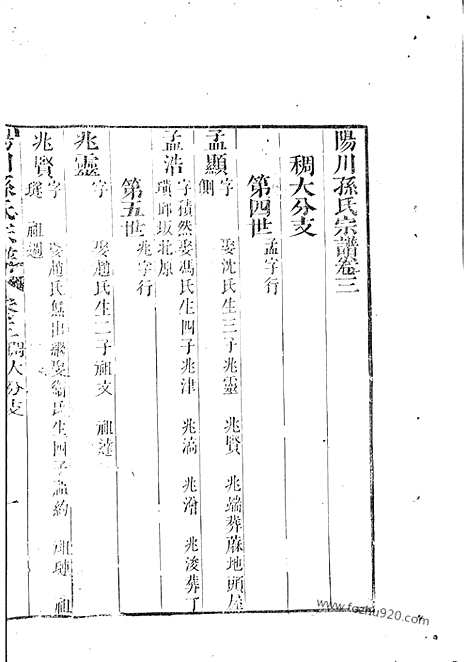 陽川孫氏宗譜卷三
稠大分支
第四世 孟字行
孟顯 字 娶沈氏生三子兆靈 兆賢 兆端葬蔴地頭屋
側
孟浩 字積然娶馮氏生四子兆津 兆滿 兆滑 兆浚葬丁
璜邱坂北原
第五世 兆字行
兆靈 字 娶趙氏生二子祖文 祖達
兆賢 字 娶趙氏 出 娶 氏生四子 約 祖璉 祖
璇 祖遇
陽川孫氏宗譜 卷三稠大分支 一
www.fozhu920.com